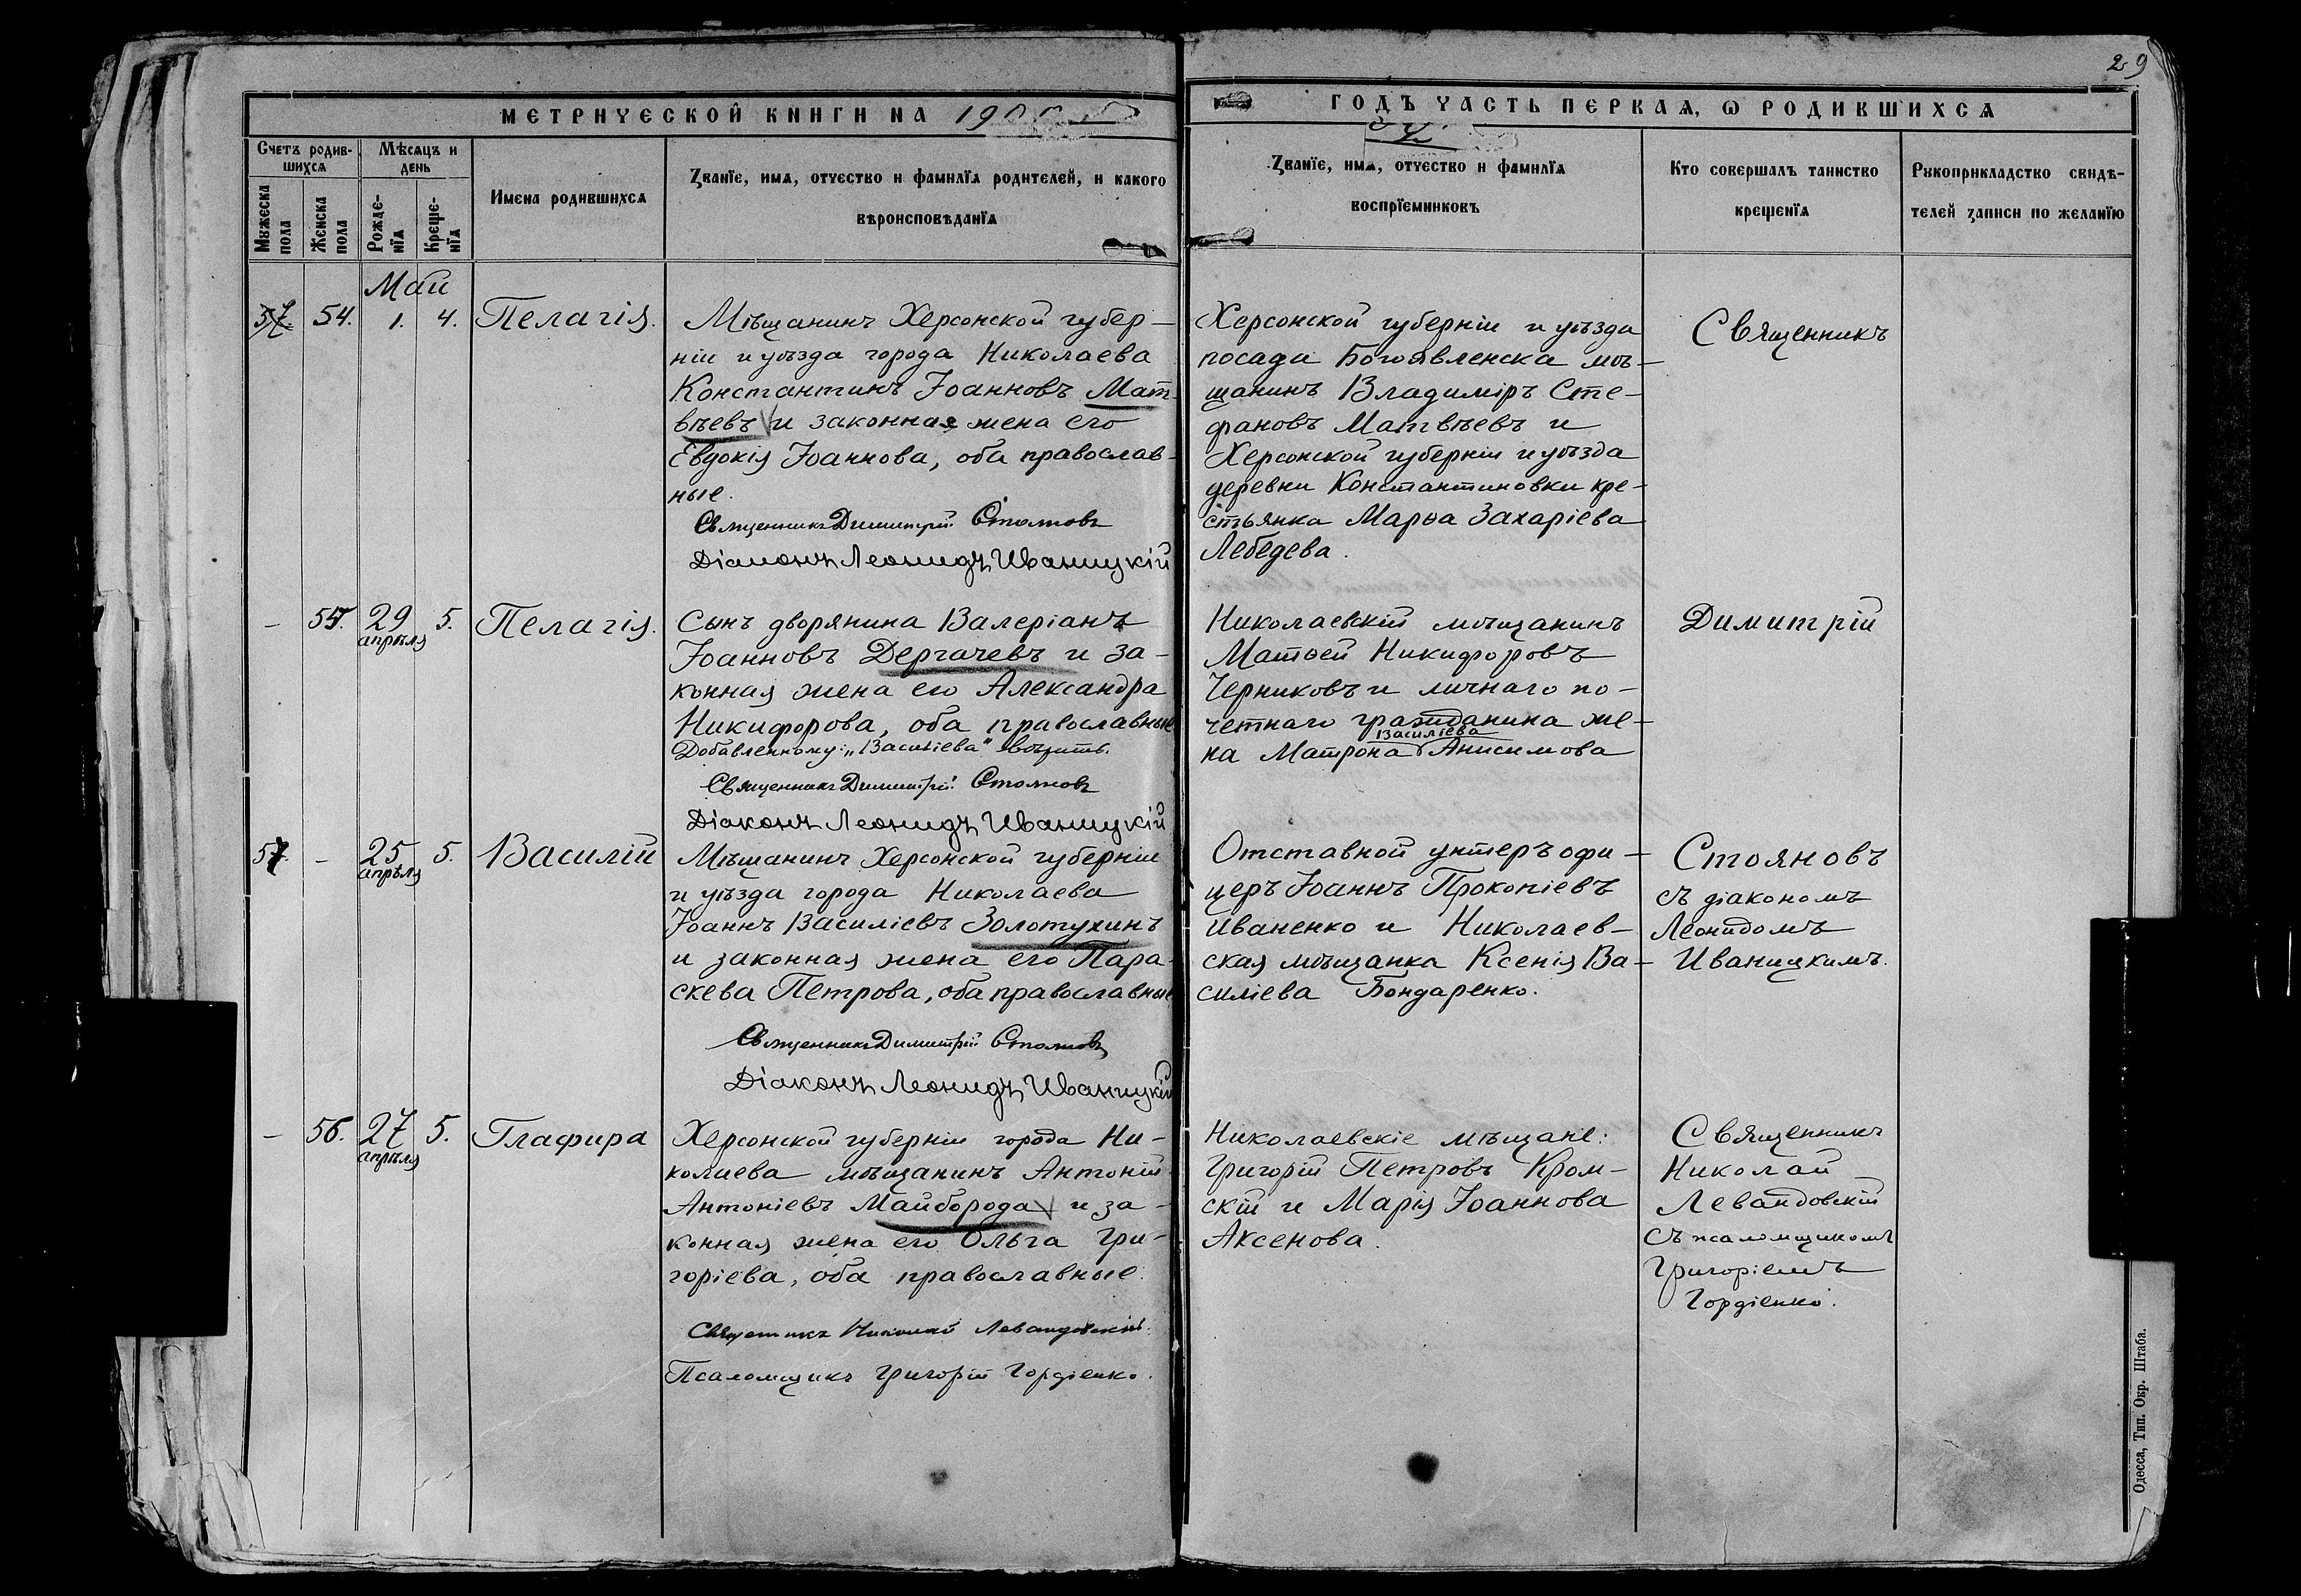 29
МЕТРИЧЕСКОЙ КНИГИ НА 190
ГОДЪ ЧАСТЬ ПЕРВАЯ, Ѡ РОДИВШИХСЯ
Счетъ родив-
шихся
Мѣсяцъ и
день
Мужеска
пола
Женска
пола
Рожде-
нїя
Креще-
нїя
Имена родившихся
Званїе, имя, отчество и фамилїя родителей, и какого
вѣроисповѣданїя
Званїе, имя, отчество и фамилїя
воспрїемниковъ
Кто совершалъ таинство
крещенїя
Рукоприкладство свидѣ-
телей записи по желанїю
Май
54. 1. 4. Пелагія.
Мѣщанинъ Херсонской губер-
ніи и уѣзда города Николаева
Константинъ Іоанновъ Мат-
вѣевъ и законная жена его
Евдокія Іоаннова, оба православ-
ные.
Священникъ Димитрій Стояновъ
Діаконъ Леонидъ Иваницкій
Херсонской губерніи и уѣзда
посада Богоявленска мѣ-
щанинъ Владиміръ Сте-
фановъ Матвѣевъ и
Херсонской губерніи и уѣзда
деревни Константиновки кре-
стьянка Марѳа Захаріева
Лебедева.
Священникъ
- 55. 29 5. Пелагія.
апрѣля
Сынъ дворянина Валеріанъ
Іоанновъ Дергачевъ и за-
конная жена его Александра
Никифорова, оба православные
Добавленному: „Василіева" вѣрить.
Священникъ Димитрій Стояновъ
Діаконъ Леонидъ Иваницкій
Николаевскій мѣщанинъ
Матѳей Никифоровъ
Черниковъ и личнаго по-
четнаго гражданина же-
Василіева
на Матрона Анисимова
Димитрій
57. - 25 5. Василій
апрѣля
Мѣщанинъ Херсонской губерніи
и уѣзда города Николаева
Іоаннъ Василіевъ Золотухинъ
и законная жена его Пара-
скева Петрова, оба православные
Священникъ Димитрій Стояновъ
Діаконъ Леонидъ Иваницкій
Отставной унтеръ офи-
церъ Іоаннъ Прокопіевъ
Иваненко и Николаев-
ская мѣщанка Ксенія Ва-
силіева Бондаренко.
Стояновъ
съ діакономъ
Леонидомъ
Иваницкимъ.
- 56. 27 5. Глафира
апрѣля
Херсонской губерніи города Ни-
колаева мѣщанинъ Антоній
Антоніевъ Майборода и за-
конная жена его Ольга Гри-
горіева, оба православные.
Священникъ Николай Левандовскій.
Псаломщикъ Григорій Гордіенко.
Николаевскіе мѣщане:
Григорій Петровъ Кром-
скій и Марія Іоаннова
Аксенова.
Священникъ
Николай
Левандовскій
съ псаломщикомъ
Григоріемъ
Гордіенко.
Одесса, Тип. Окр. Штаба.